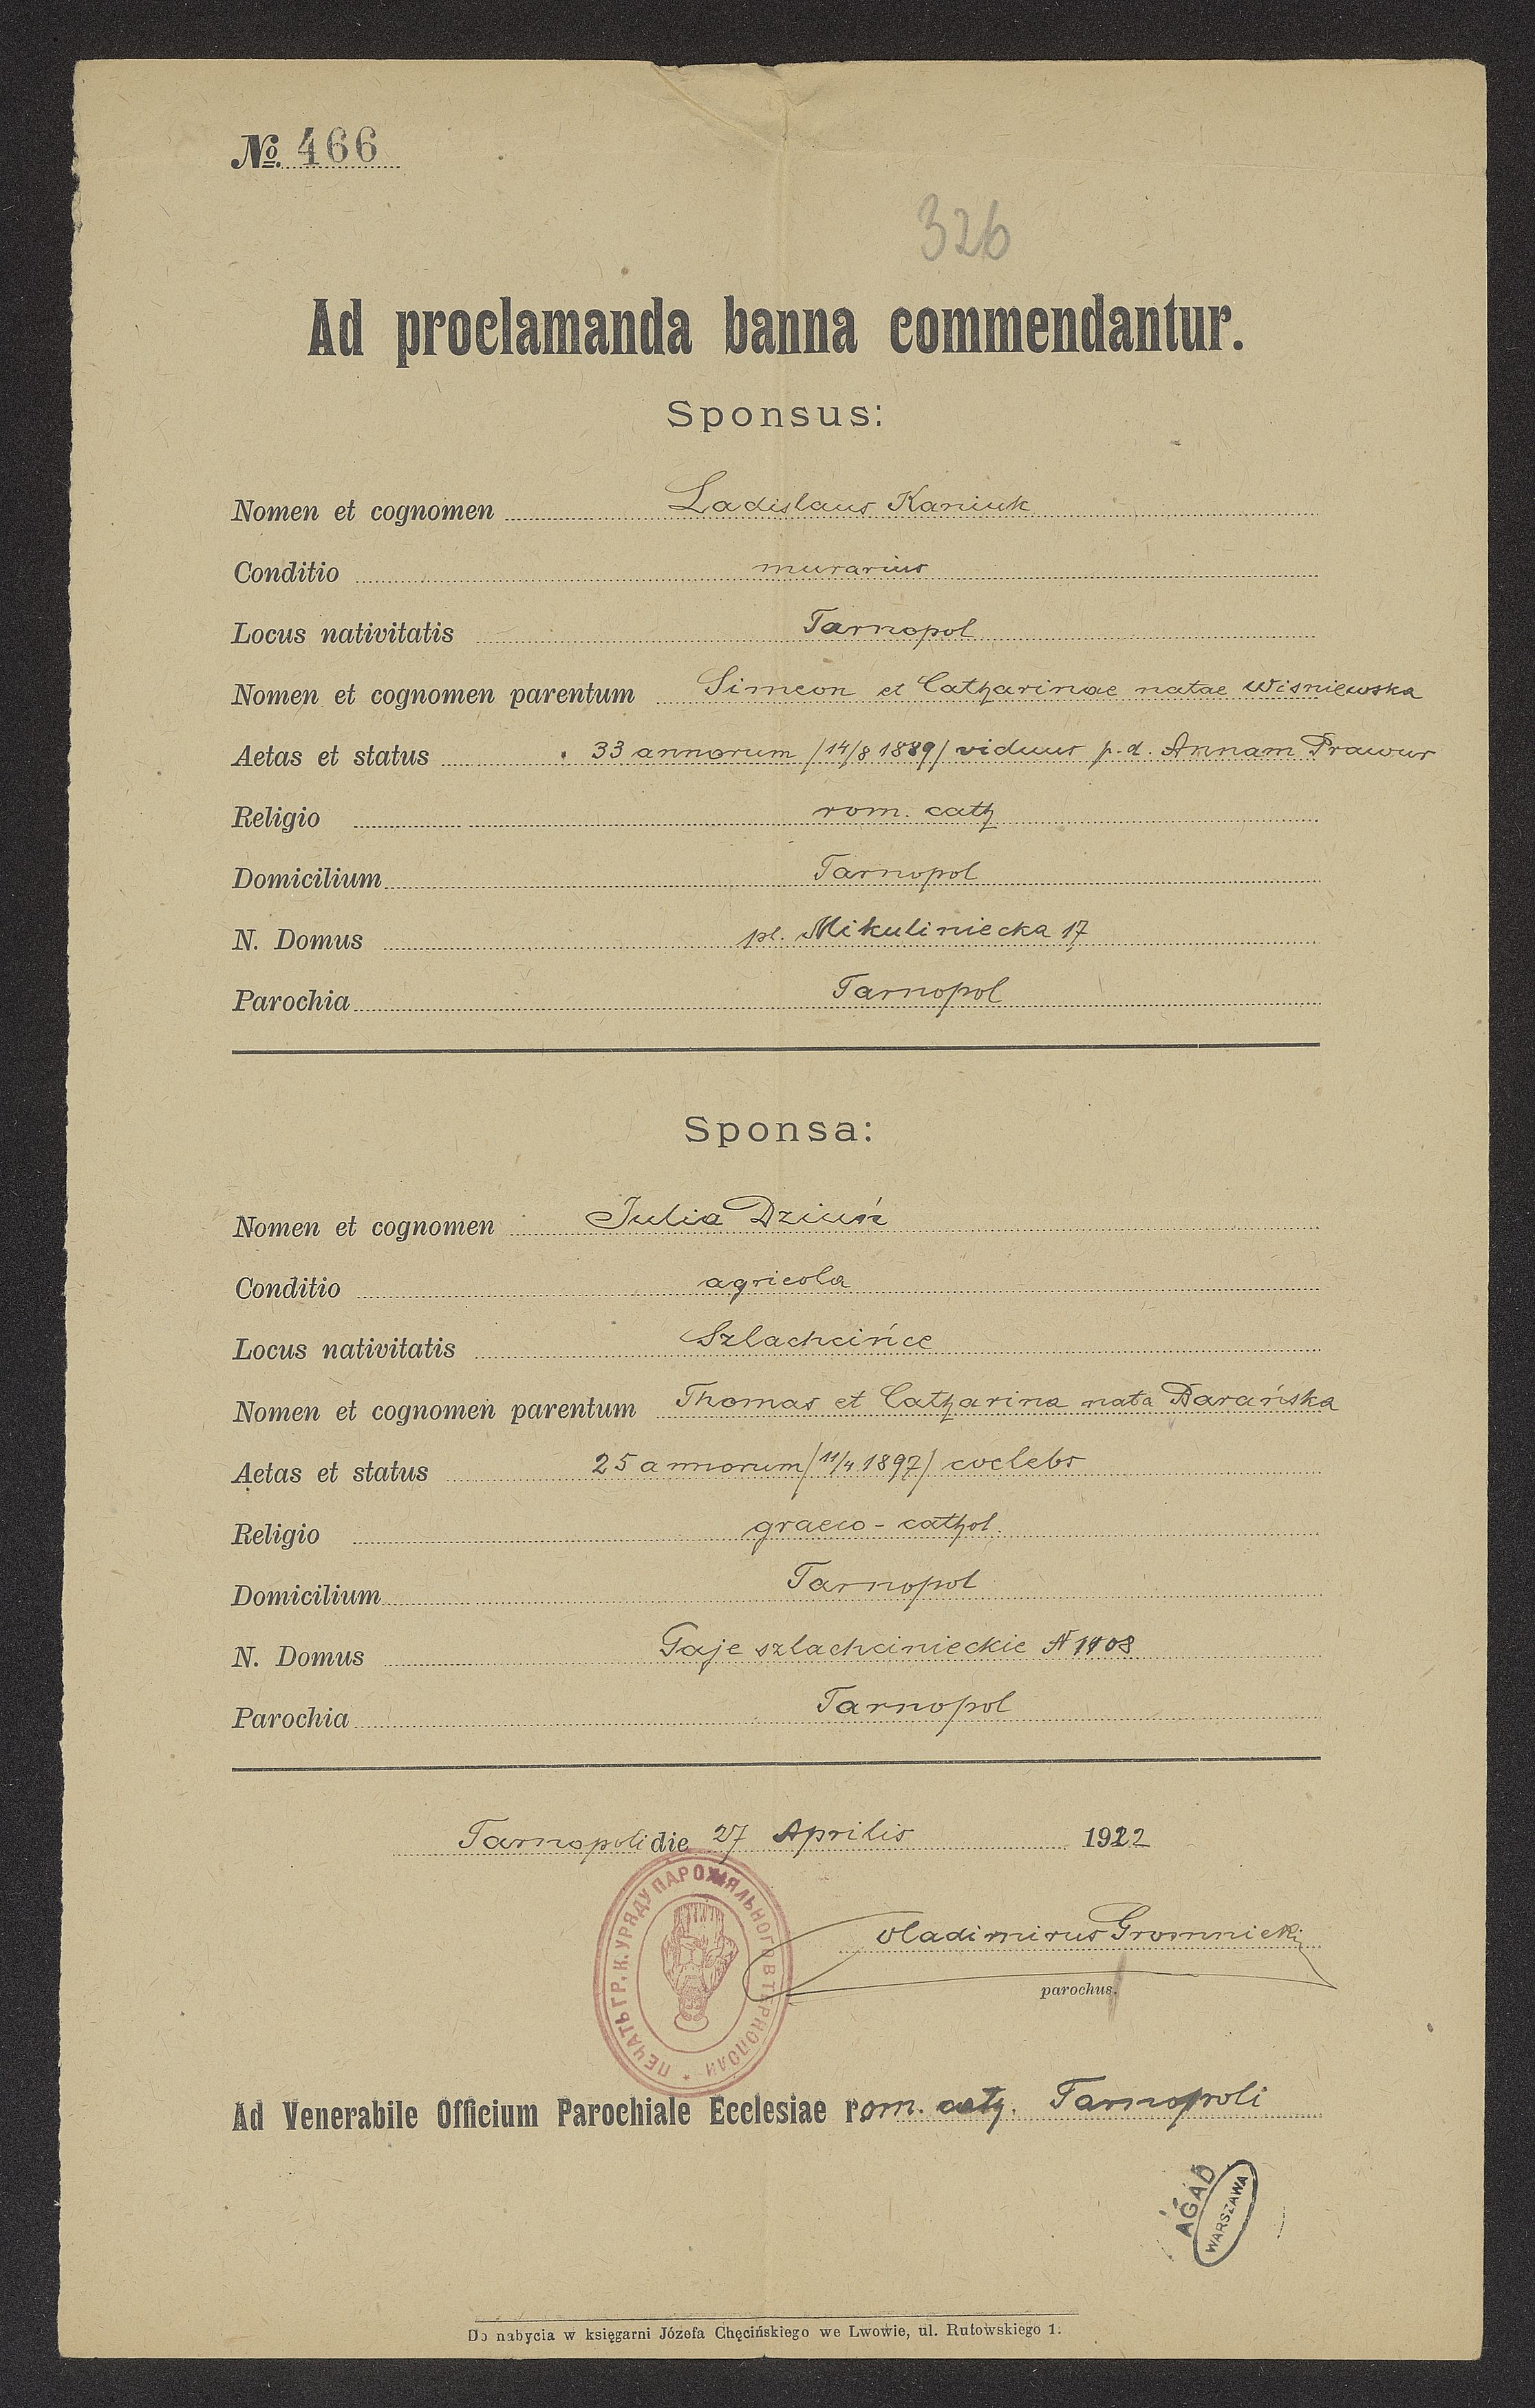 No. 466
326
Ad proclamanda banna commendantur.
Sponsus:
Nomen et cognomen Ladislaus Kaniuk
Conditio murarius
Locus nativitatis Tarnopol
Nomen et cognomen parentum Simeon et Catharinae natae Wisniewska
Aetas et status 33 annorum /14/8 1889/ viduus p. d. Annam Prawur
Religio rom. cath
Domicilium Tarnopol
N. Domus pl. Mikuliniecka 17
Parochia Tarnopol
Sponsa:
Nomen et cognomen Julia Dziuń
Conditio agricola
Locus nativitatis Szlachcińce
Nomen et cognomen parentum Thomas et Catharina nata Barańska
Aetas et status 25 annorum /11/4 1897/ coelebs
Religio graeco-cathol.
Domicilium Tarnopol
N. Domus Gaje szlachcinieckie N
Parochia Tarnopol
Tarnopoli die 27 Aprilis 1922
ПЕЧАТЬ ГР. К. УРЯДУ ПАРОХІЯЛЬНОГО В ТЕРНОПОЛИ
Vladimirus Gromnicki
parochus.
Ad Venerabile Officium Parochiale Ecclesiae rom. cath. Tarnopoli
AGAD
WARSZAWA
Do nabycia w księgarni Józefa Chęcińskiego we Lwowie, ul. Rutowskiego 1.